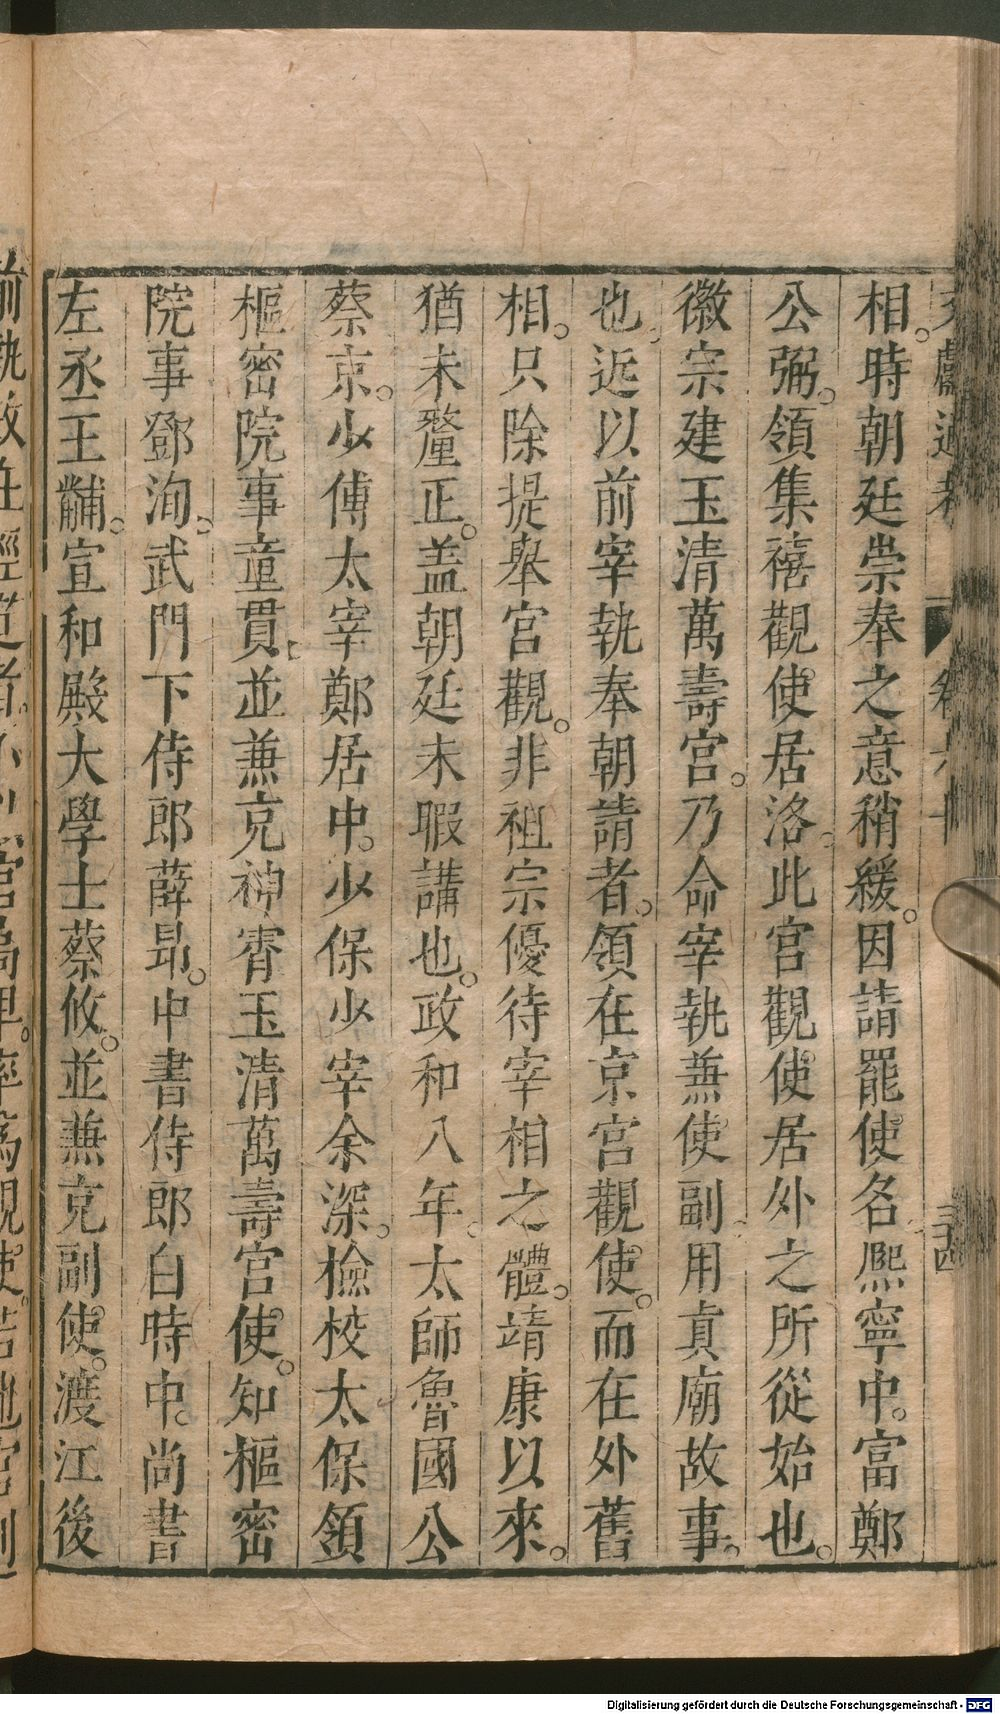 文獻通考 卷六十 三十四
相。時朝廷崇奉之意稍緩。因請罷使名。熈寧中。富鄭
公弼。領集禧觀使居洛。此宫觀使居外之所從始也。
徽宗建玉清萬壽宫。乃命宰執兼使副用真廟故事。
也近以前宰執奉朝請者。領在京宫觀使。而在外舊
相。只除提舉宫觀。非祖宗優待宰相之體。靖康以來。
猶未釐正。蓋朝廷未暇講也。政和八年。太師魯國公
蔡京。少傅太宰鄭居中。少保少宰余深。檢校太保領
樞密院事童貫。並兼充神霄玉清萬壽宫使。知樞密
院事鄧洵。武門下侍郎薛昻。中書侍郎白時中。尚書
左丞王黼。宣和殿大學士蔡攸。並兼充副使。渡江後
Digitalisierung gefördert durch die Deutsche Forschungsgemeinschaft - DFG